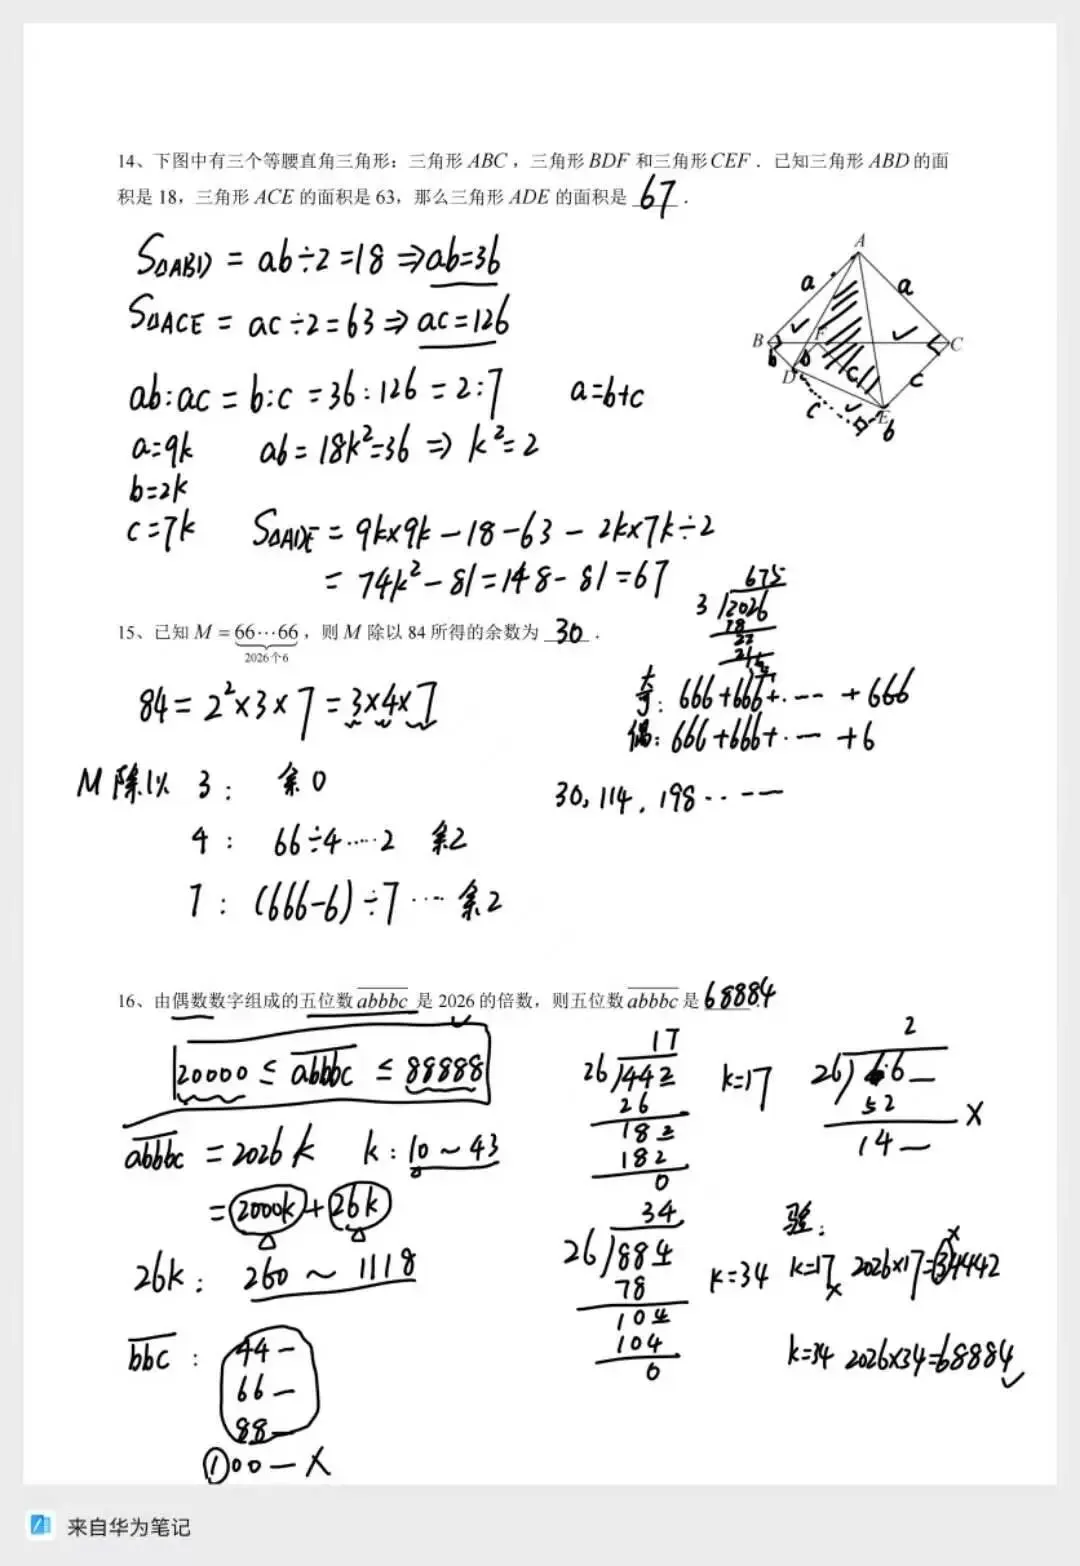 14、下图中有三个等腰直角三角形：三角形 ABC，三角形 BDF 和三角形 CEF．已知三角形 ABD 的面
积是 18，三角形 ACE 的面积是 63，那么三角形 ADE 的面积是 67．
S△ABD = ab÷2=18 ⇒ab=36
S△ACE = ac÷2=63⇒ac=126
ab:ac = b:c =36:126=2:7
a=b+c
a=9k
ab=18k²=36 ⇒ k²=2
b=2k
c=7k
S△ADE = 9k×9k-18-63-2k×7k÷2
= 74k²-81=148-81=67
A
a
a
B
F
C
b
b
D
c
c
E
b
15、已知 M = 66⋯66，则 M 除以 84 所得的余数为 30．
2026个6
675
3 2026
18
22
21
84 = 2²×3×7=3×4×7
奇: 666+666+·⋯ +666
偶: 666+666+·⋯ +6
M 除以 3: 余0
30, 114, 198⋯⋯
4: 66÷4⋯⋯2 余2
7: (666-6)÷7⋯⋯余2
16、由偶数数字组成的五位数 abbbc 是 2026 的倍数，则五位数 abbbc 是 68884
20000 ≤ abbbc ≤ 88888
abbbc = 2026k k: 10~43
= 2000k + 26k
26k: 260 ~ 1118
bbc:
44-
66-
88-
①00-×
17
26 442
26
182
182
0
k=17
2
26 66-
52
14-
×
34
26 884
78
104
104
0
k=34
验:
k=17 2026×17=34442
×
×
k=34 2026×34=68884
✓
来自华为笔记